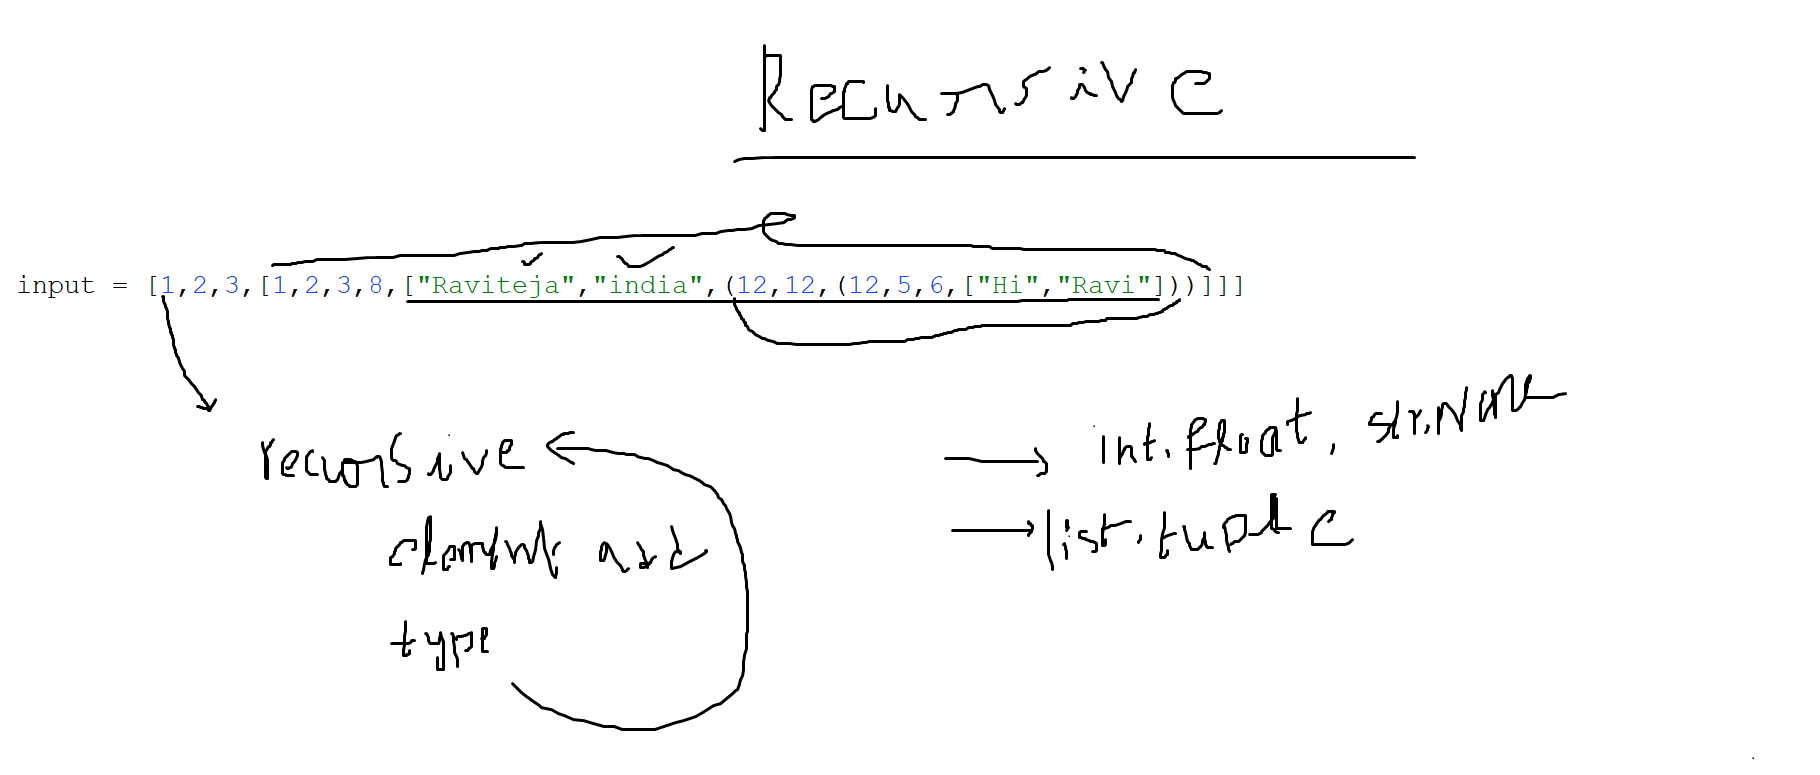 Recursive
input = [1,2,3,[1,2,3,8,["Raviteja","india",(12,12,(12,5,6,["Hi","Ravi"]))]]]
recursive
element and
type
int. float, str.None
list, tuple